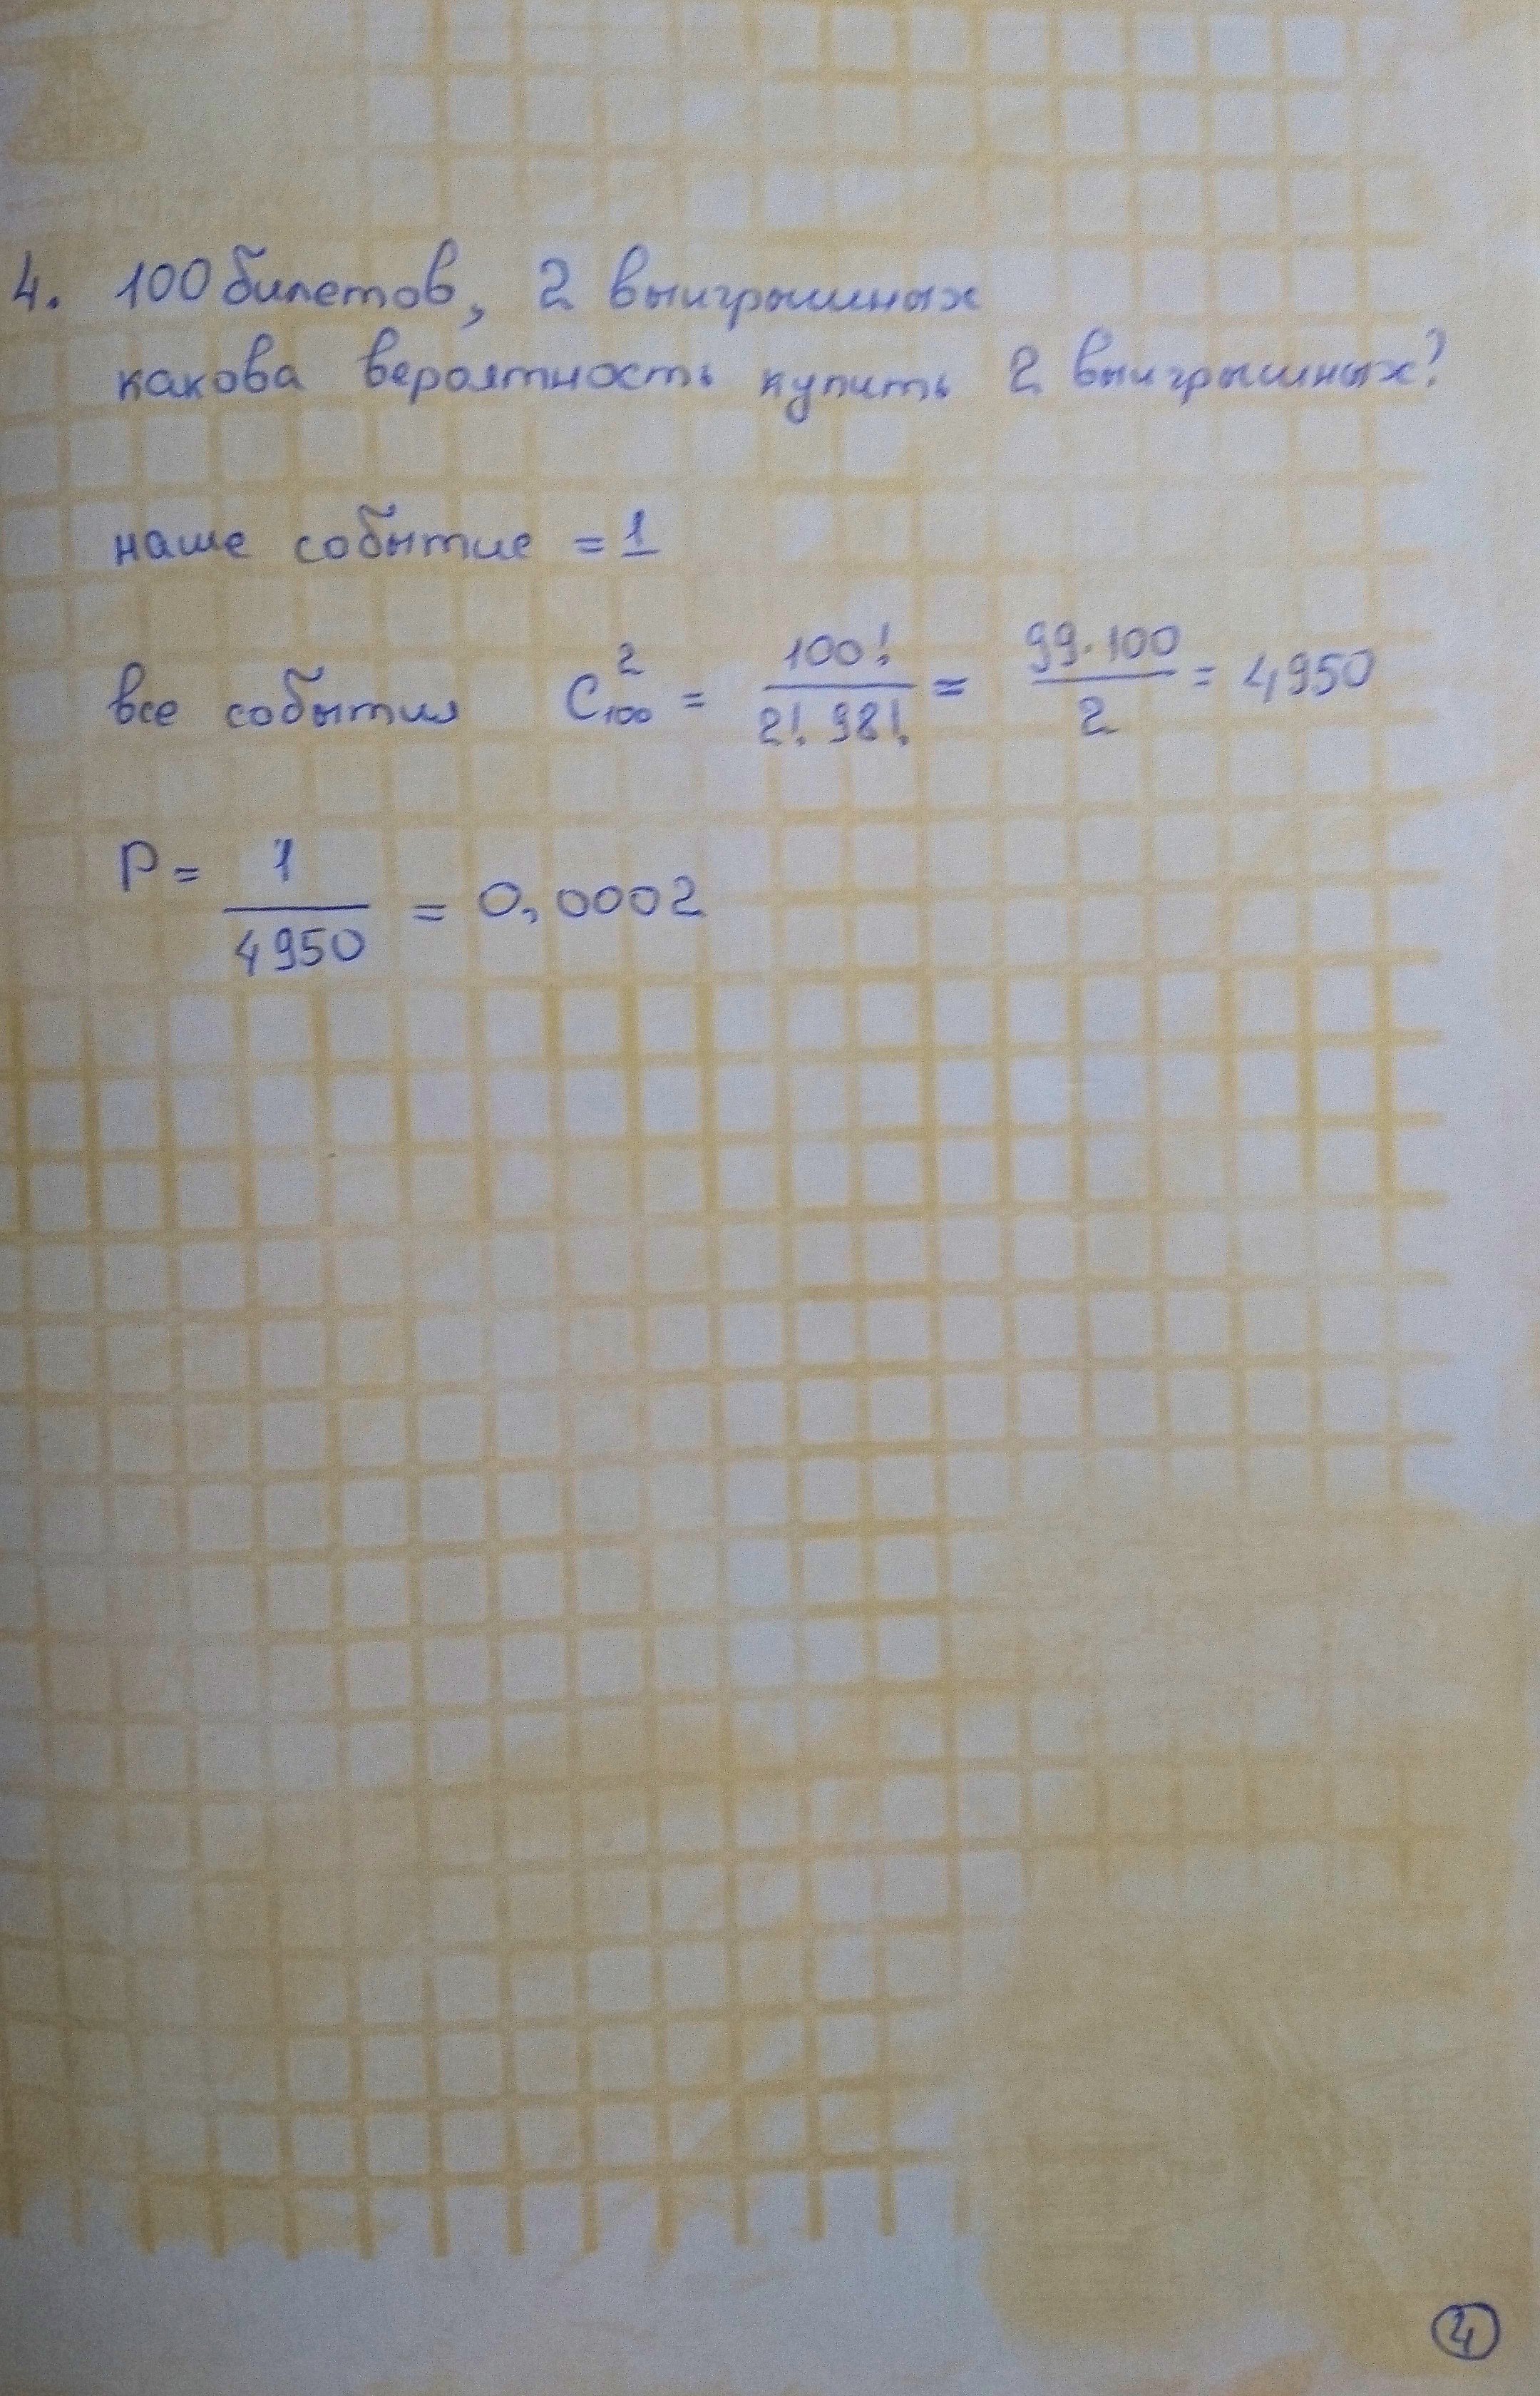 4. 100 билетов, 2 выигрышных
какова вероятность купить 2 выигрышных?
наше событие = 1
все события C²₁₀₀ = 100! / 2! 98! = 99·100 / 2 = 4950
P = 1 / 4950 = 0,0002
4